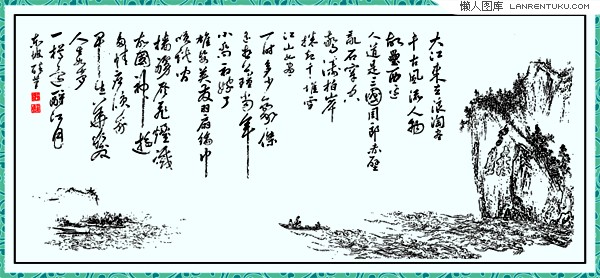 懒人图库
LANRENTUKU.COM
大江东去浪淘尽
千古风流人物
故垒西边
人道是三國周郎赤壁
乱石穿空
惊涛拍岸
捲起千堆雪
江山如画
一时多少豪傑
遥想公瑾当年
小乔初嫁了
雄姿英发羽扇纶巾
谈笑间
樯橹灰飞煙滅
故國神遊
多情应笑我
早生華发
人生如梦
一樽还酹江月
东坡